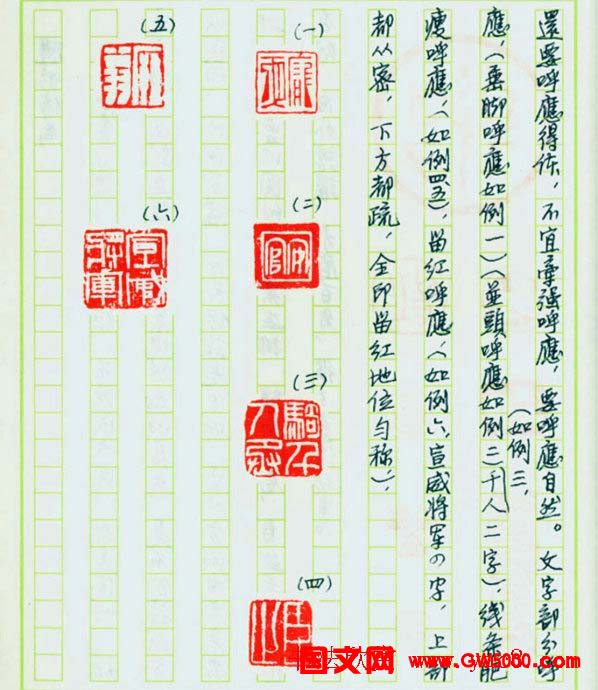 還要呼應得体，不宜牽强呼應，要呼應自然。文字部分呼
應，（垂脚呼應如例一）（並頭呼應如例二）（千人二字），线条肥
（如例三，
瘦呼應，（如例四、五），留红呼應，（如例六，宣威将军の字，上部
都从密，下方都疏，全印留红地位匀称），
（一）
（二）
（三）
（四）
（五）
（六）
宣威將軍
国文网 www.GW5000.com